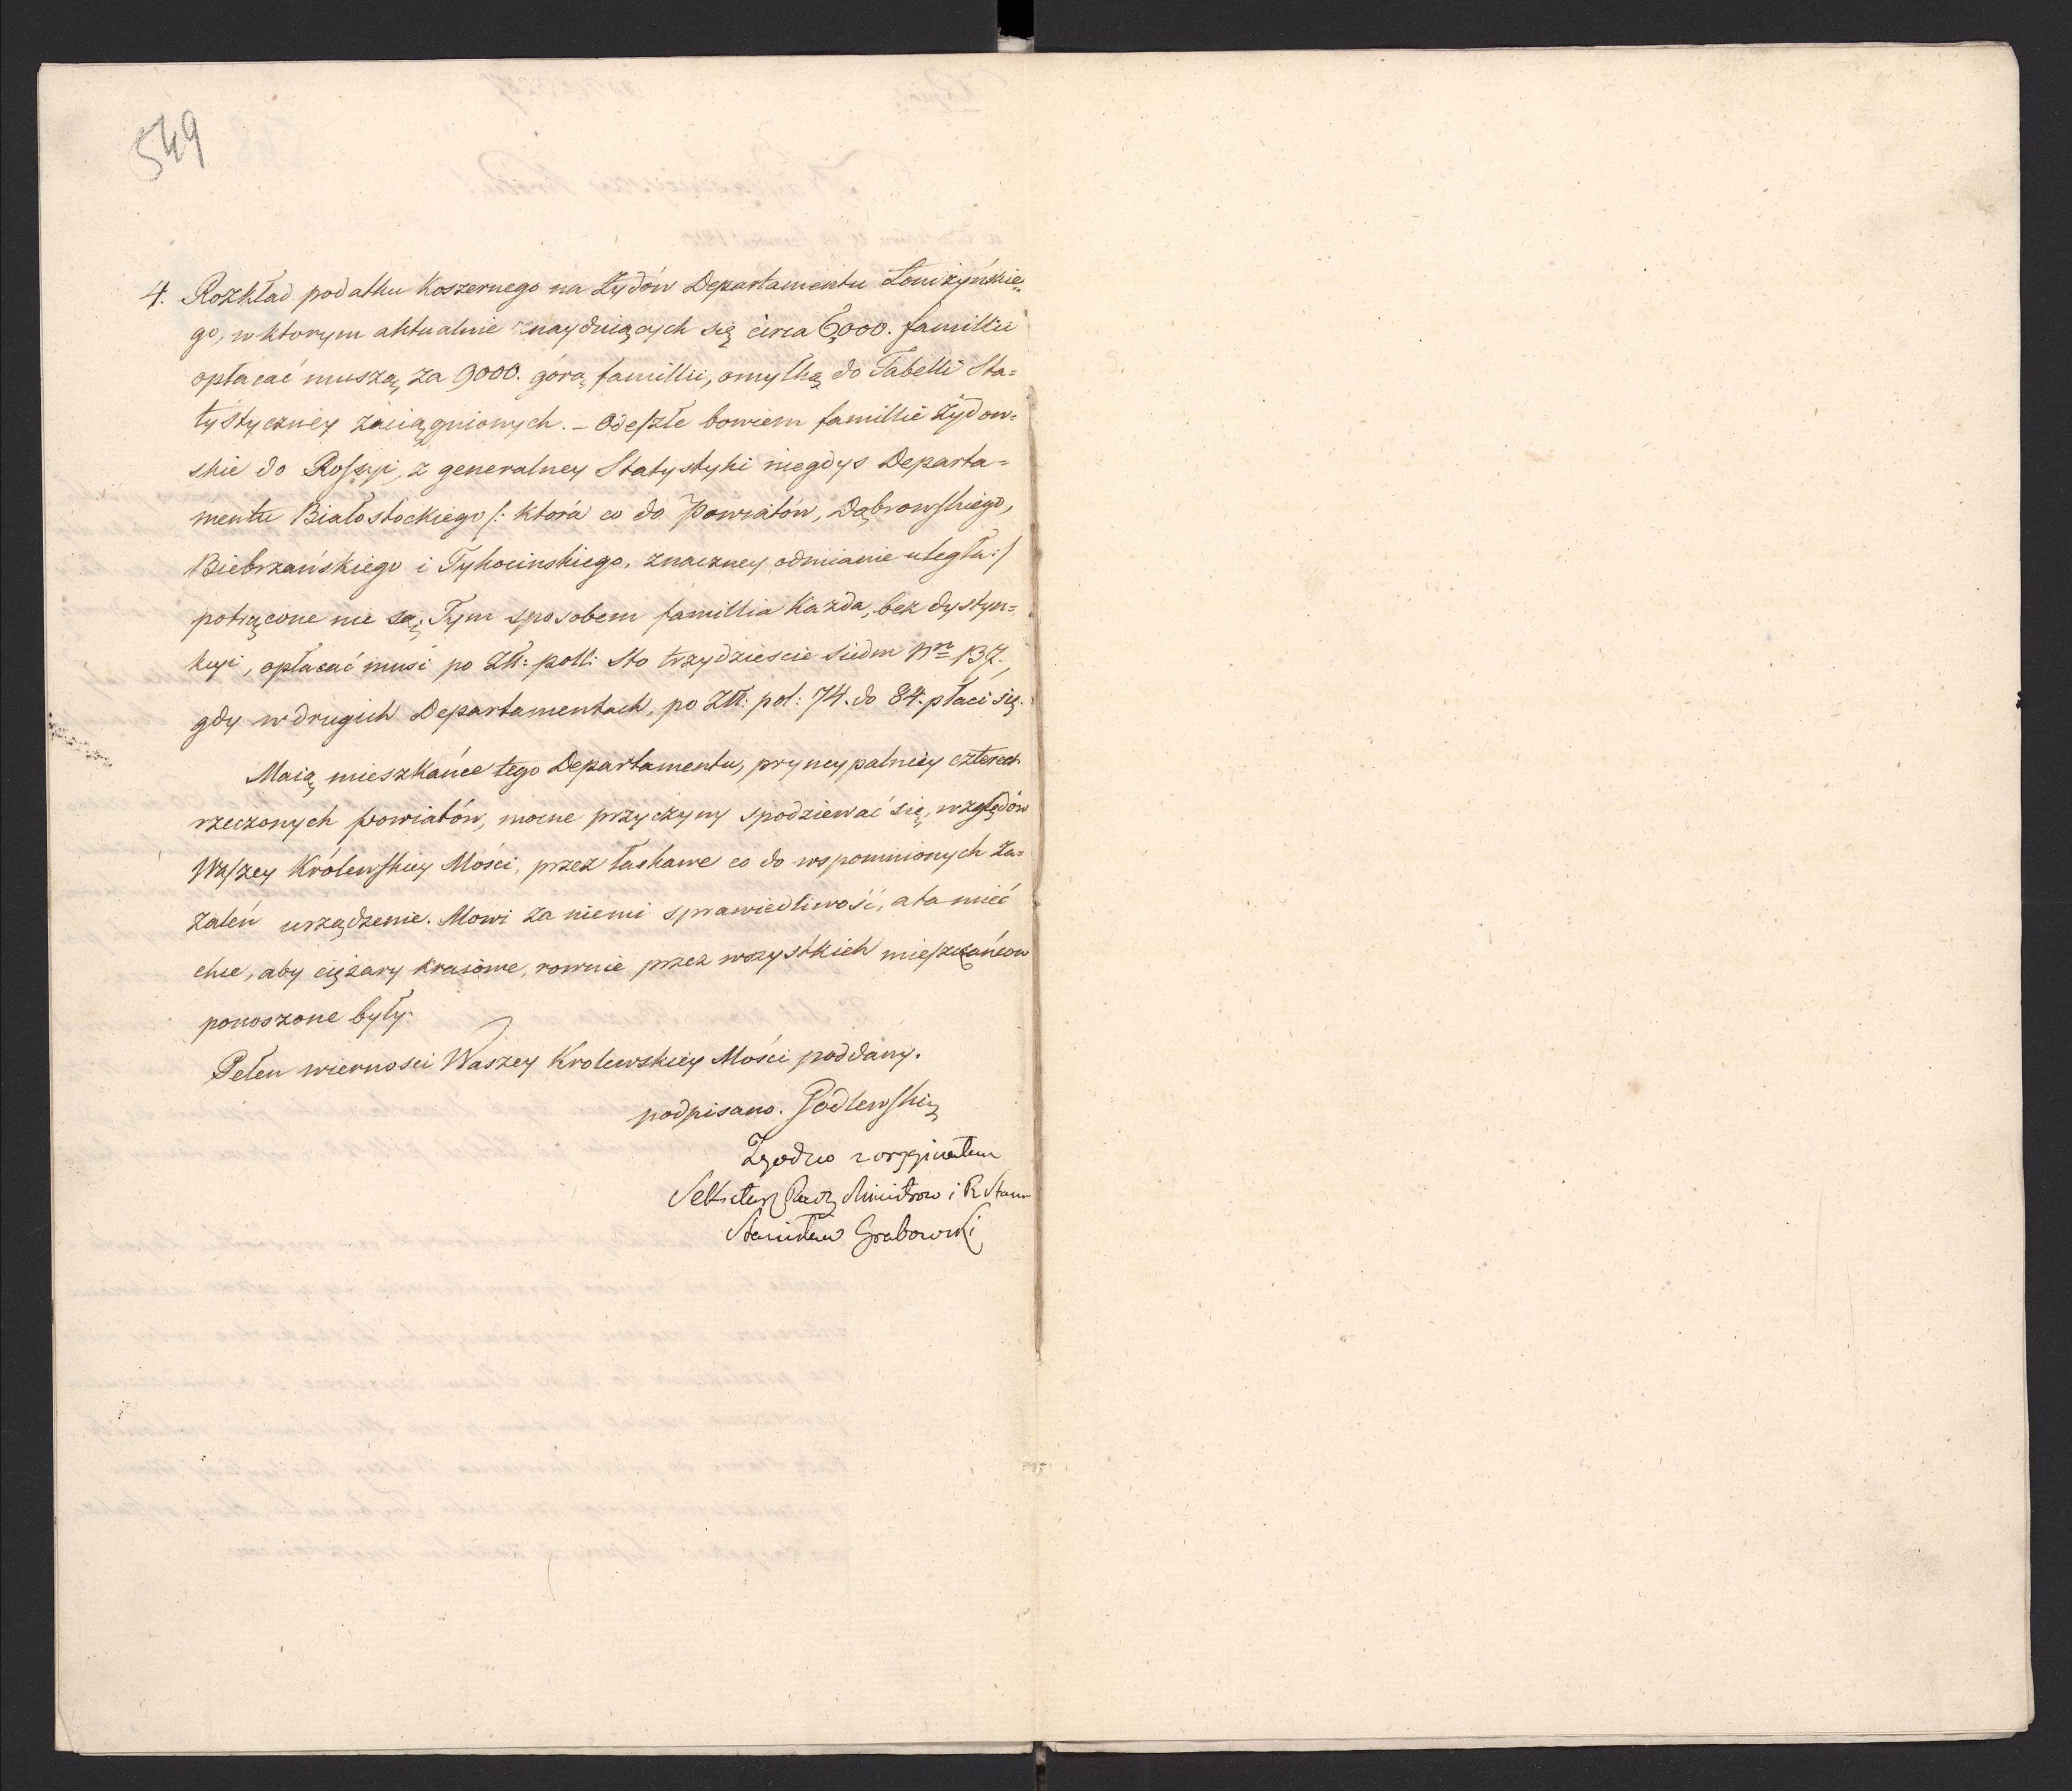 549
4. Rozkład podatku Koszernego na Żydów Departamentu Łomżyńskie=
go, w ktorym aktualnie znayduiących się circa 6,000. famillii
opłacać muszą za 9000. górą famillii, omyłką do Tabelli Sta=
tystyczney zaciągnionych. – Odeszłe bowiem famillie Żydow=
skie do Rossyi, z generalney Statystyki niegdys Departa=
mentu Białostockiego /: ktorá co do Powiatów, Dąbrowskiego,
Biebrzańskiego i Tykocinskiego, znaczney odmianie uległa :/
potrącone nie są; Tym sposobem famillia każda, bez dystyn=
kcyi, opłacać musi po Złł: poll: Sto trzydzieście siedm Nro 137.,
gdy w drugich Departamentach, po Złł: pol: 74. do 84. płaci się.
Maią mieszkańce tego Departamentu, pryncypalniey czterech
rzeczonych powiatów, mocne przyczyny spodziewać się, względów
Waszey Królewskiey Mości, przez łaskawe co do wspomnionych Za=
żaleń urządzenie. Mowi za niemi sprawiedliwość, a ta mieć
chce, aby ciężary kraiowe, rownie przez wszystkich mieszkańcow
ponoszone były.
Pełen wiernosci Waszey Krolewskiey Mości poddany.
podpisano. Godlewski
Zgodno z oryginałem
Sekretarz Rady Ministrow i R Stanu
Stanisław Grabowski